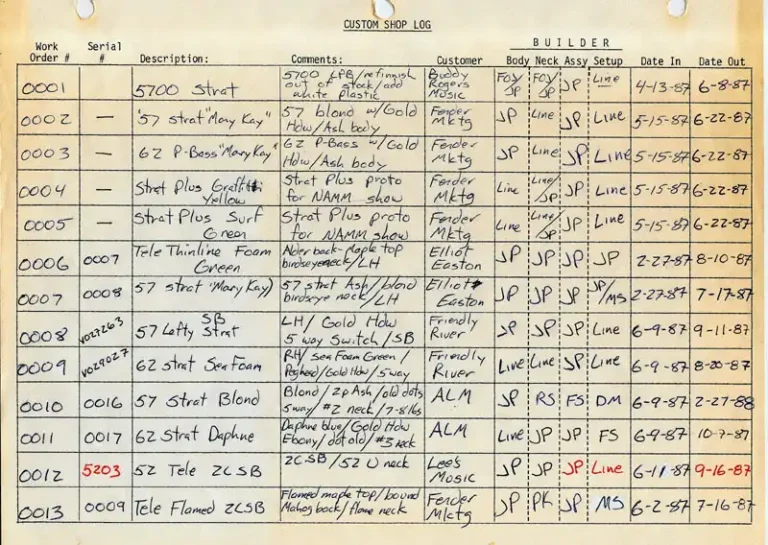 CUSTOM SHOP LOG
BUILDER
Work Order # Serial # Description: Comments: Customer Body Neck Assy Setup Date In Date Out
0001 5700 Strat 5700 LPB/refinish out of stock/add white plastic Buddy Rogers Music Fox/JP Fox/JP JP Line 4-13-87 6-8-87
0002 — '57 strat "Mary Kay" 57 blond w/Gold Hdw/Ash body Fender Mktg JP Line JP Line 5-15-87 6-22-87
0003 — 62 P-Bass "Mary Kay" 62 P-Bass w/Gold Hdw/Ash body Fender Mktg JP Line JP Line 5-15-87 6-22-87
0004 — Strat Plus Graffitti Yellow Strat Plus proto for NAMM show Fender Mktg Line Line/JP JP Line 5-15-87 6-22-87
0005 — Strat Plus Surf Green Strat Plus proto for NAMM show Fender Mktg Line Line/JP JP Line 5-15-87 6-22-87
0006 0007 Tele Thinline Foam Green Alder back-Maple top birdseye neck/LH Elliot Easton JP JP JP JP 2-27-87 8-10-87
0007 0008 57 strat "Mary Kay) 57 strat Ash/blond birdseye neck/LH Elliot Easton JP JP JP JP/MS 2-27-87 7-17-87
0008 V027263 57 Lefty Strat SB LH/ Gold Hdw 5 way Switch/SB Friendly River JP JP JP Line 6-9-87 9-11-87
0009 V029027 62 strat Sea Foam RH/ Sea Foam Green / Peghead/Gold Hdw/5way Friendly River Line Line JP Line 6-9-87 8-20-87
0010 0016 57 Strat Blond Blond/2p Ash/old dots 5way/#2 neck/7-8 lbs ALM JP RS FS DM 6-9-87 2-27-88
0011 0017 62 Strat Daphne Daphne blue/Gold Hdw Ebony/dot old/#3 neck ALM Line JP JP FS 6-9-87 10-7-87
0012 5203 52 Tele 2CSB 2CSB/52 U neck Lee's Music JP JP JP Line 6-11-87 9-16-87
0013 0009 Tele Flamed 2CSB Flamed maple top/bound Mahog back/flame neck Fender Mktg JP PK JP MS 6-2-87 7-16-87